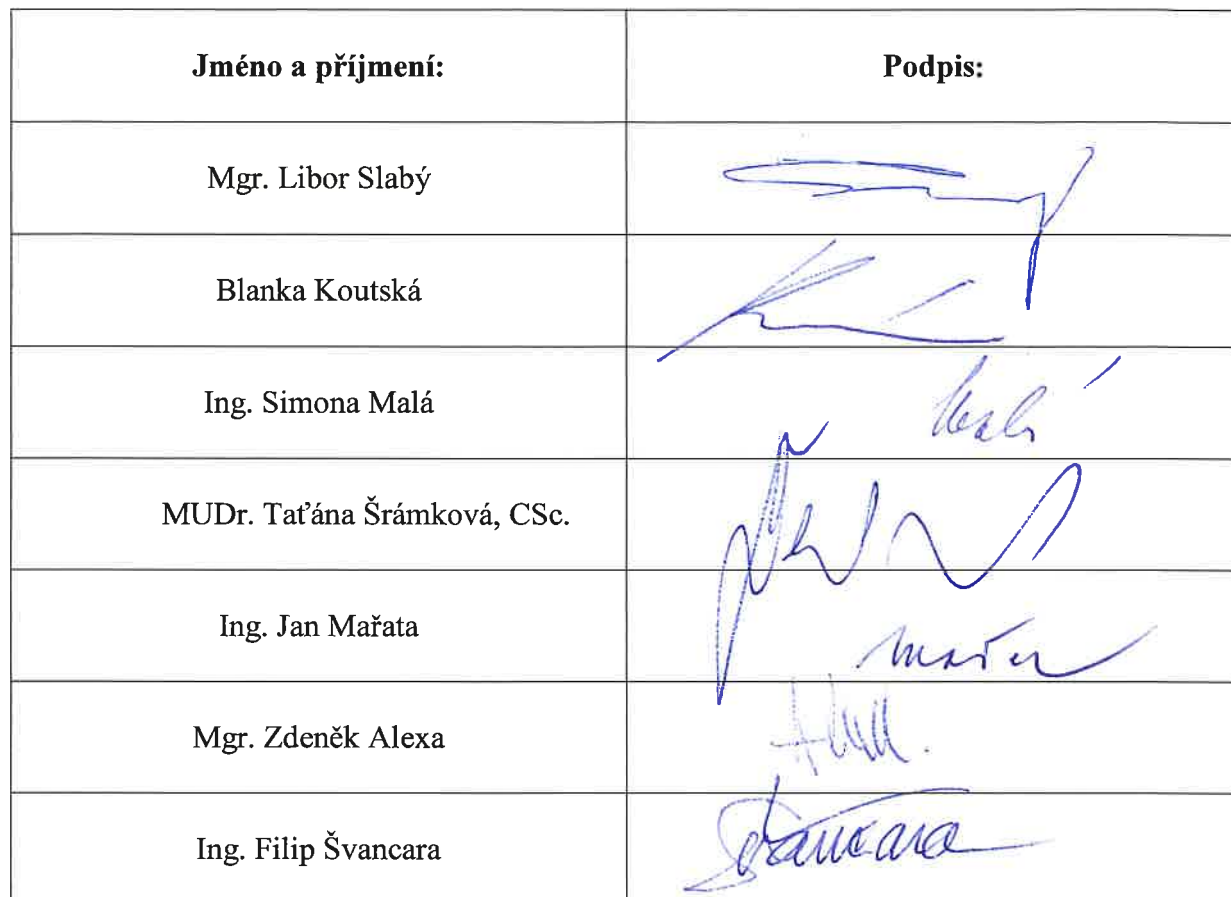 Jméno a příjmení: Podpis:
Mgr. Libor Slabý
Blanka Koutská
Ing. Simona Malá Malá
MUDr. Taťána Šrámková, CSc.
Ing. Jan Mařata
Mgr. Zdeněk Alexa
Ing. Filip Švancara Švancara